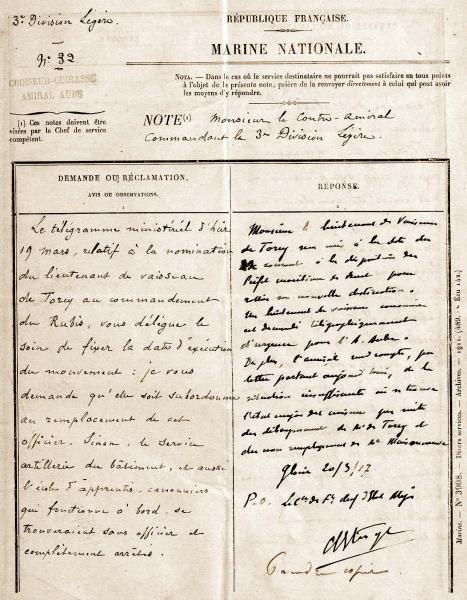 3e Division Légère.
No 32
CROISEUR-CUIRASSÉ
AMIRAL AUBE
(1) Ces notes doivent être
visées par le Chef de service
compétent.
RÉPUBLIQUE FRANÇAISE.
MARINE NATIONALE.
NOTA. — Dans le cas où le service destinataire ne pourrait pas satisfaire en tous points
à l'objet de la présente note, prière de la renvoyer directement à celui qui peut avoir
les moyens d'y répondre.
NOTE(1) Monsieur le Contre-amiral
Commandant la 3me Division Légère.
DEMANDE OU RÉCLAMATION,
AVIS OU OBSERVATIONS.
Le télégramme ministériel d'hier
19 mars, relatif à la nomination
du lieutenant de vaisseau
de Torcy au commandement
du Rubis, vous délègue le
soin de fixer la date d'exécution
du mouvement : je vous
demande qu'elle soit subordonnée
au remplacement de cet
officier. Sinon, le service
artillerie du bâtiment, et aussi
l'école d'apprentis-canonniers
qui fonctionne à bord, se
trouveraient sans officier et
complètement arrêtés.
RÉPONSE.
Monsieur le lieutenant de Vaisseau
de Torcy sera mis à la date du
courant à la disposition du
Préfet maritime de pour
rallier sa nouvelle destination.
Un lieutenant de vaisseau canonnier
est demandé télégraphiquement
d'urgence pour l'A. Aube.
De plus, l'amiral rend compte, par
lettre partant aujourd'hui, de la
situation insuffisante où se trouve
l'état major du croiseur par suite
du débarquement de Mr de Torcy et
du non remplacement de Mr
20/3/17
P.O. Le
Prendre copie
Marine. — No 3908. — Divers services. — Archives. — 1911. (489.